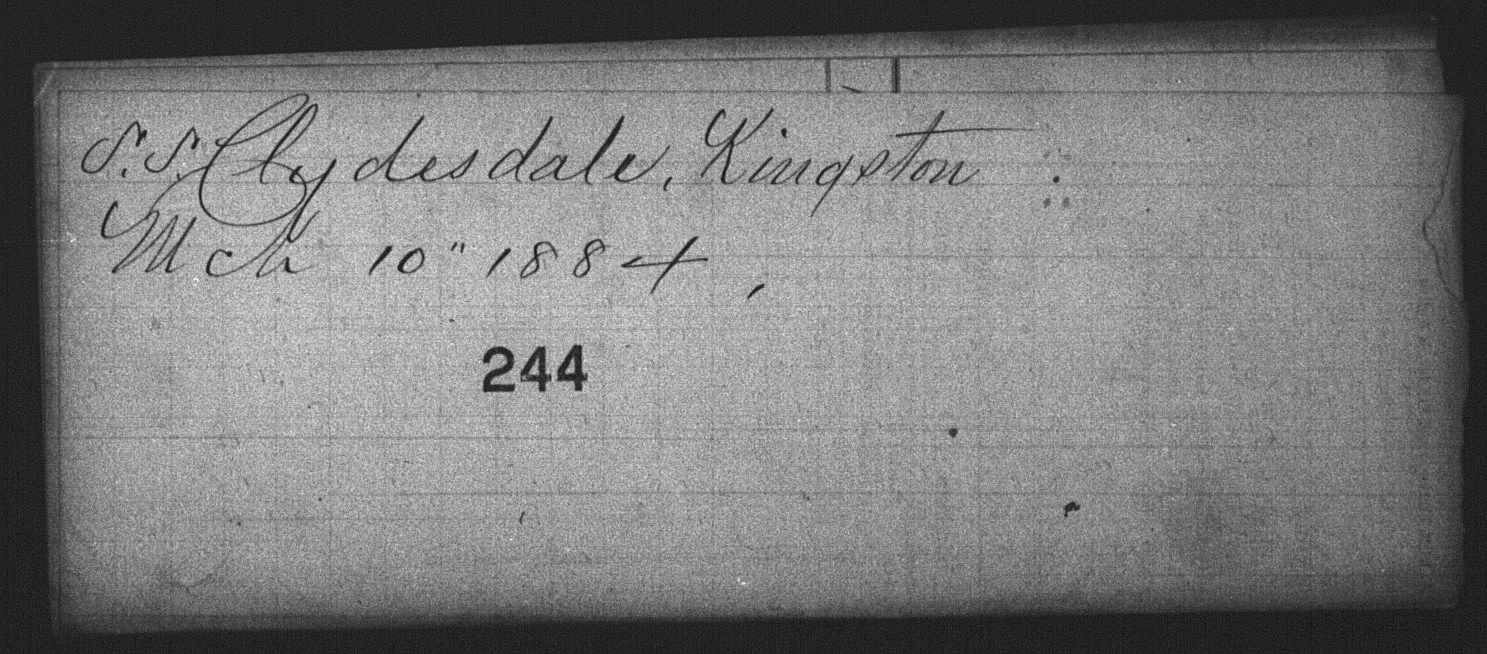 S.S. Clydesdale, Kingston
Mch 10" 1884,
244